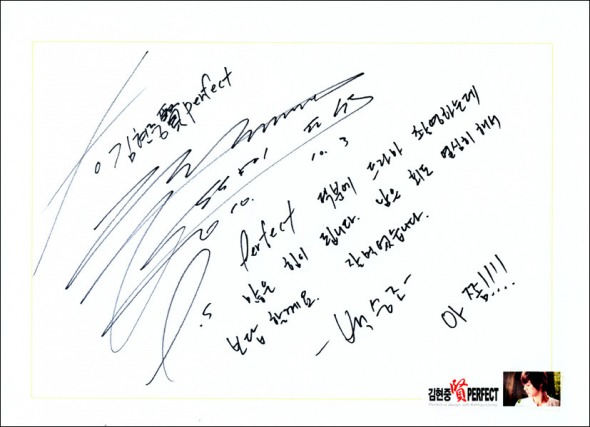 김현중賢perfect
10. 10. 3
Perfect 덕분에 드라마 촬영하는데
많은 힘이 됩니다. 남은 회도 열심히 해서
보답 할께요. 잘먹었습니다.
- 백승조 -
아 쫌!!!!
김현중賢PERFECT